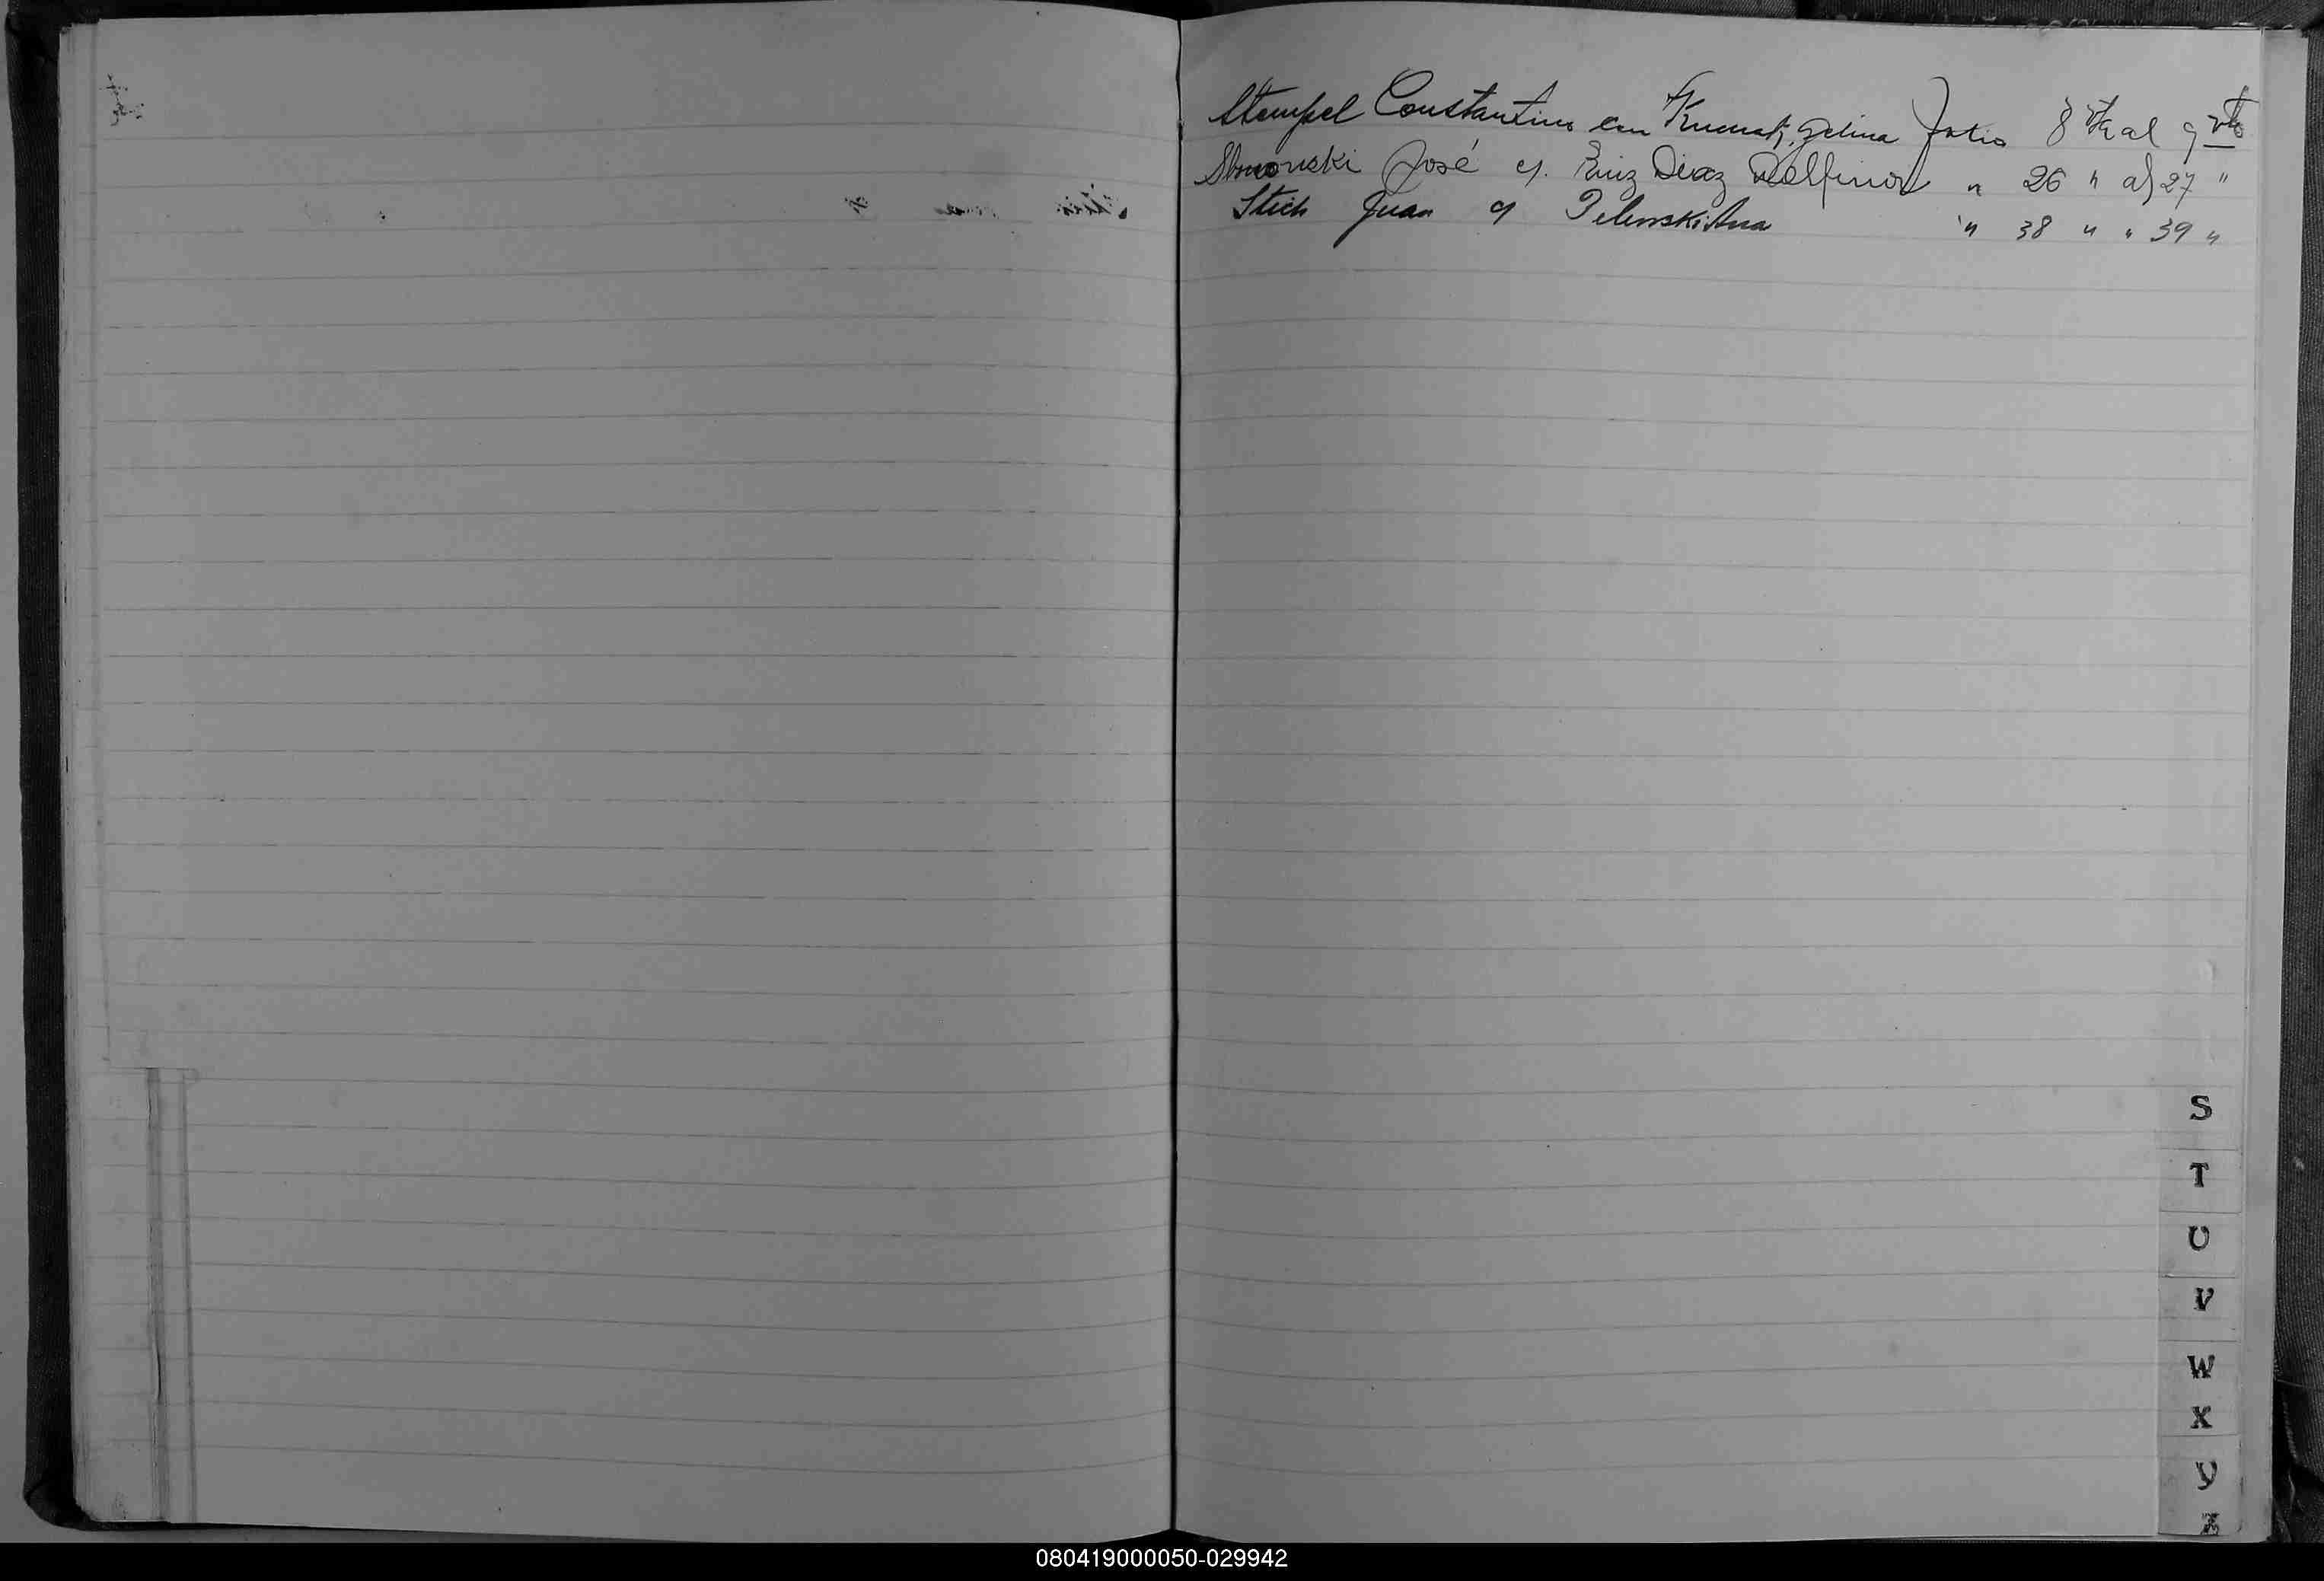 Stempel Constantino con Kucnaß, Zelina Folio 8 vta al 9 vto
José c/. Ruiz Diaz Delfinor " 26 " al 27 "
Stech Juan c/ Pelenski Ana " 38 " " 39 "
S
T
U
V
W
X
Y
Z
080419000050-029942